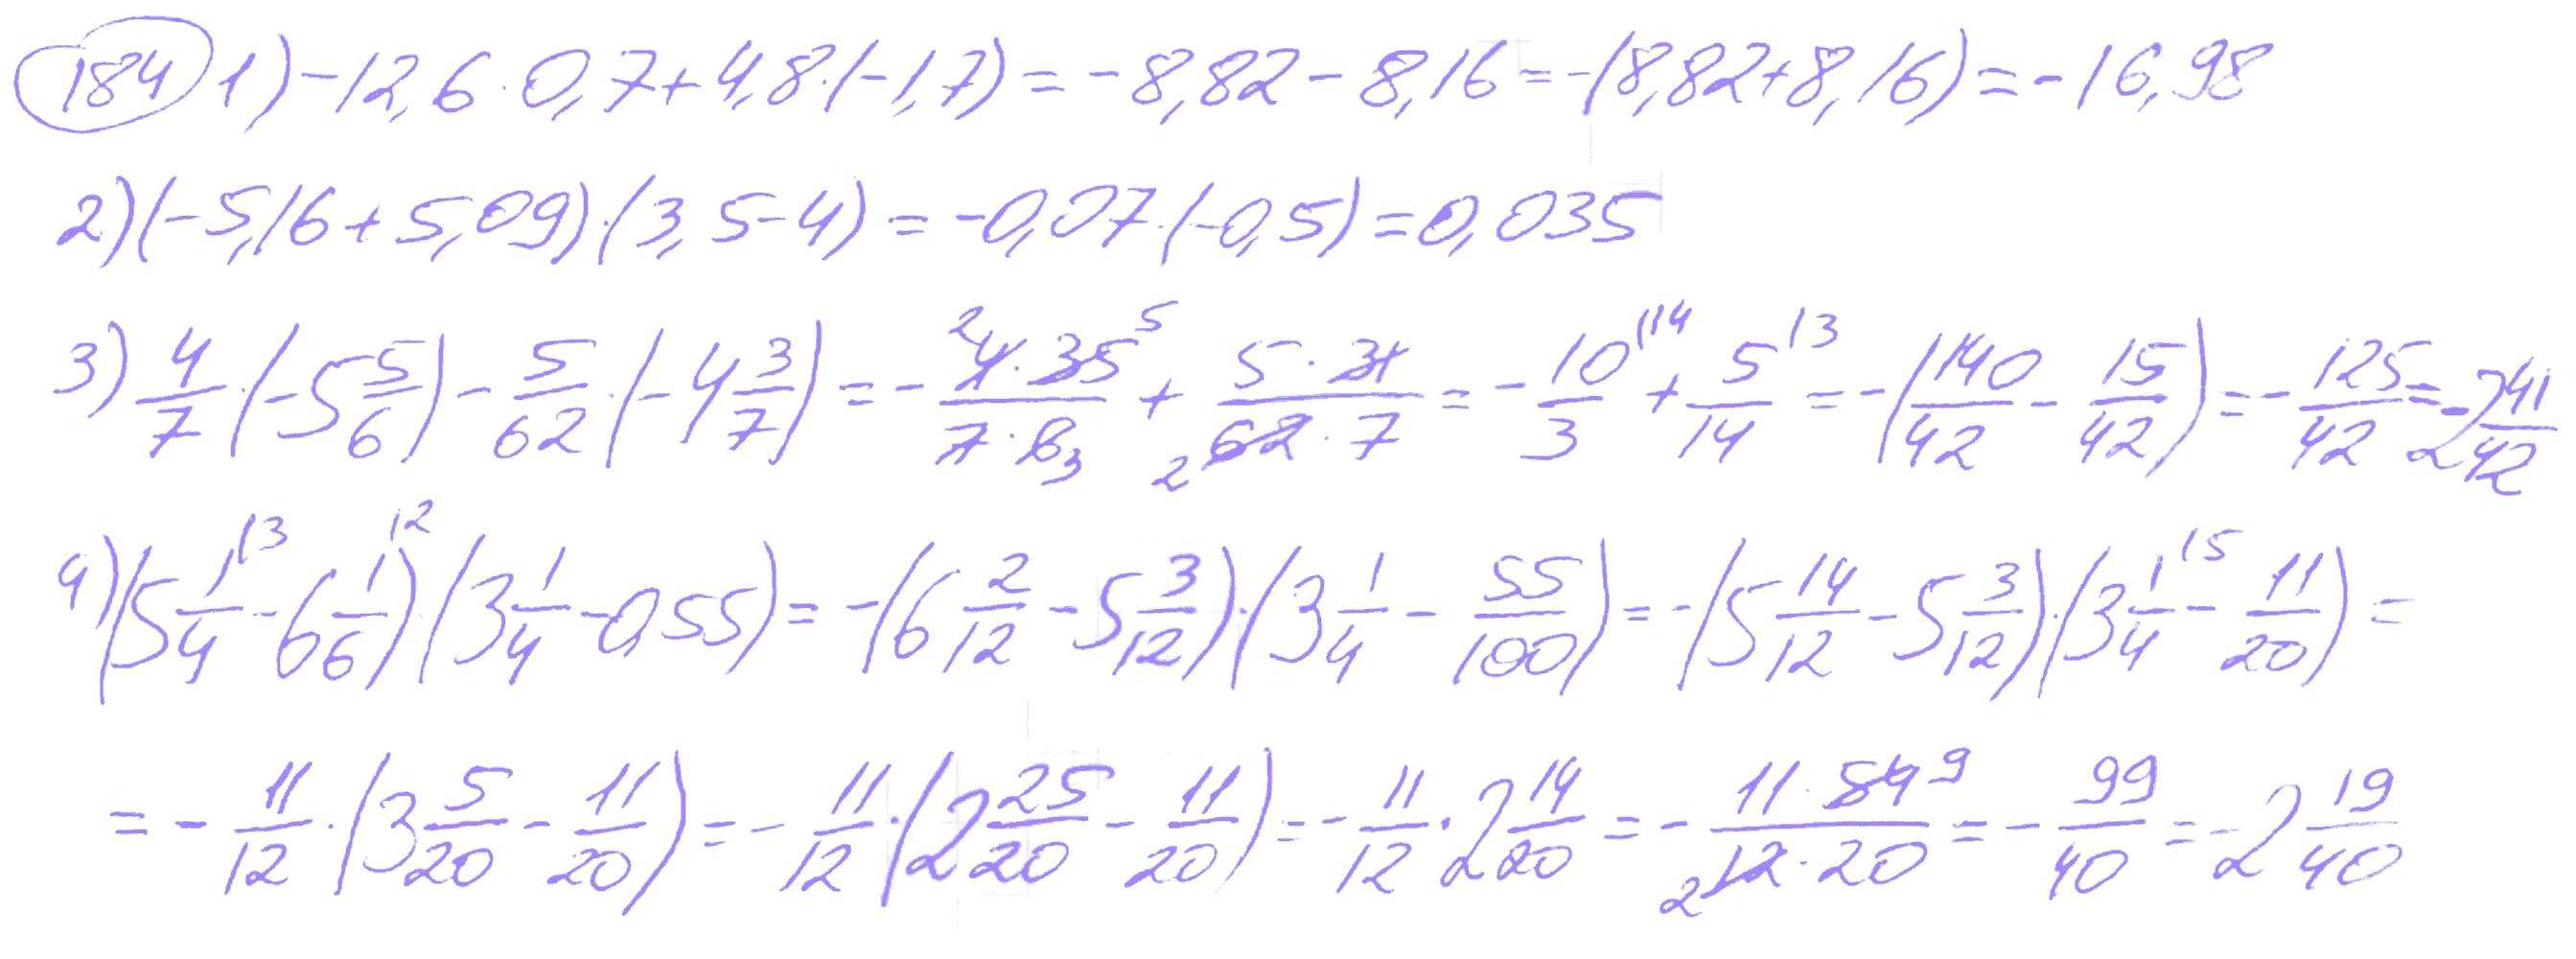 184 1) -12,6 · 0,7 + 4,8 · (-1,7) = -8,82 - 8,16 = -(8,82 + 8,16) = -16,98
2) (-5,16 + 5,09) · (3,5 - 4) = -0,07 · (-0,5) = 0,035
3) 4/7 · (-5 5/6) - 5/62 · (-4 3/7) = - (2 4 · 35 5)/(7 · 6 3) + (5 · 31)/(2 62 · 7) = - 10/3 |14 + 5/14 |3 = -(140/42 - 15/42) = - 125/42 = -2 41/42
4) (5 1/4 |3 - 6 1/6 |2) · (3 1/4 - 0,55) = -(6 2/12 - 5 3/12) · (3 1/4 - 55/100) = -(5 14/12 - 5 3/12) · (3 1/4 |5 - 11/20) =
= - 11/12 · (3 5/20 - 11/20) = - 11/12 · (2 25/20 - 11/20) = - 11/12 · 2 14/20 = - (11 · 54 9)/(2 12 · 20) = - 99/40 = -2 19/40